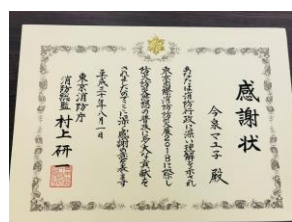 感謝状
今泉マユ子 殿
あなたは消防行政に深い理解を示され
東京国際消防防災展2018に際し
防災
されましたのでここに深く感謝の意を表します
平成三十年八月一日
東京消防庁
消防総監 村上研一